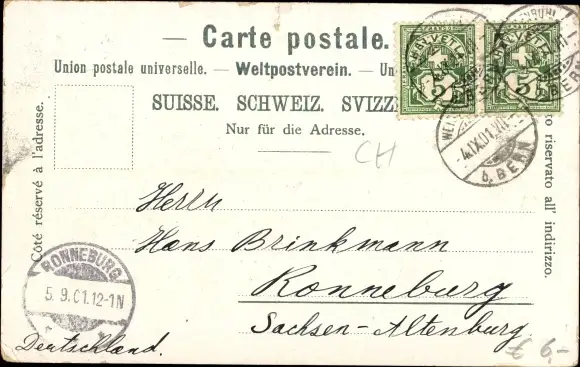 — Carte postale. —
Union postale universelle. — Weltpostverein. — Un
SUISSE. SCHWEIZ. SVIZZ
Nur für die Adresse.
Côté réservé à l'adresse.
to riservato all' indirizzo.
HELVETIA
5
5
4.IX.01.
b. BERN
CH
Herrn
Hans Brinkmann
Ronneburg
Sachsen-Altenburg.
Deutschland.
RONNEBURG
5. 9. 01. 12-1N
6,-